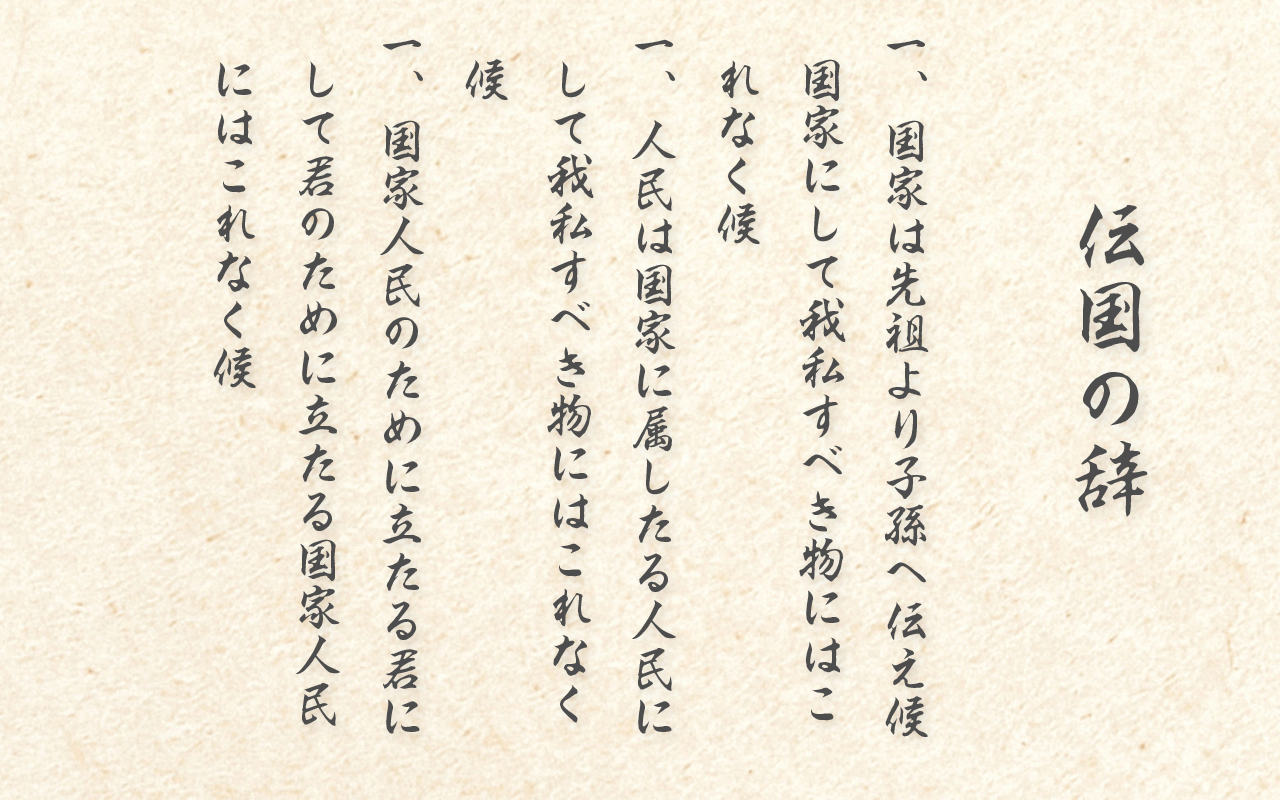 伝国の辞
一、国家は先祖より子孫へ伝え候
国家にして我私すべき物にはこ
れなく候
一、人民は国家に属したる人民に
して我私すべき物にはこれなく
候
一、国家人民のために立たる君に
して君のために立たる国家人民
にはこれなく候